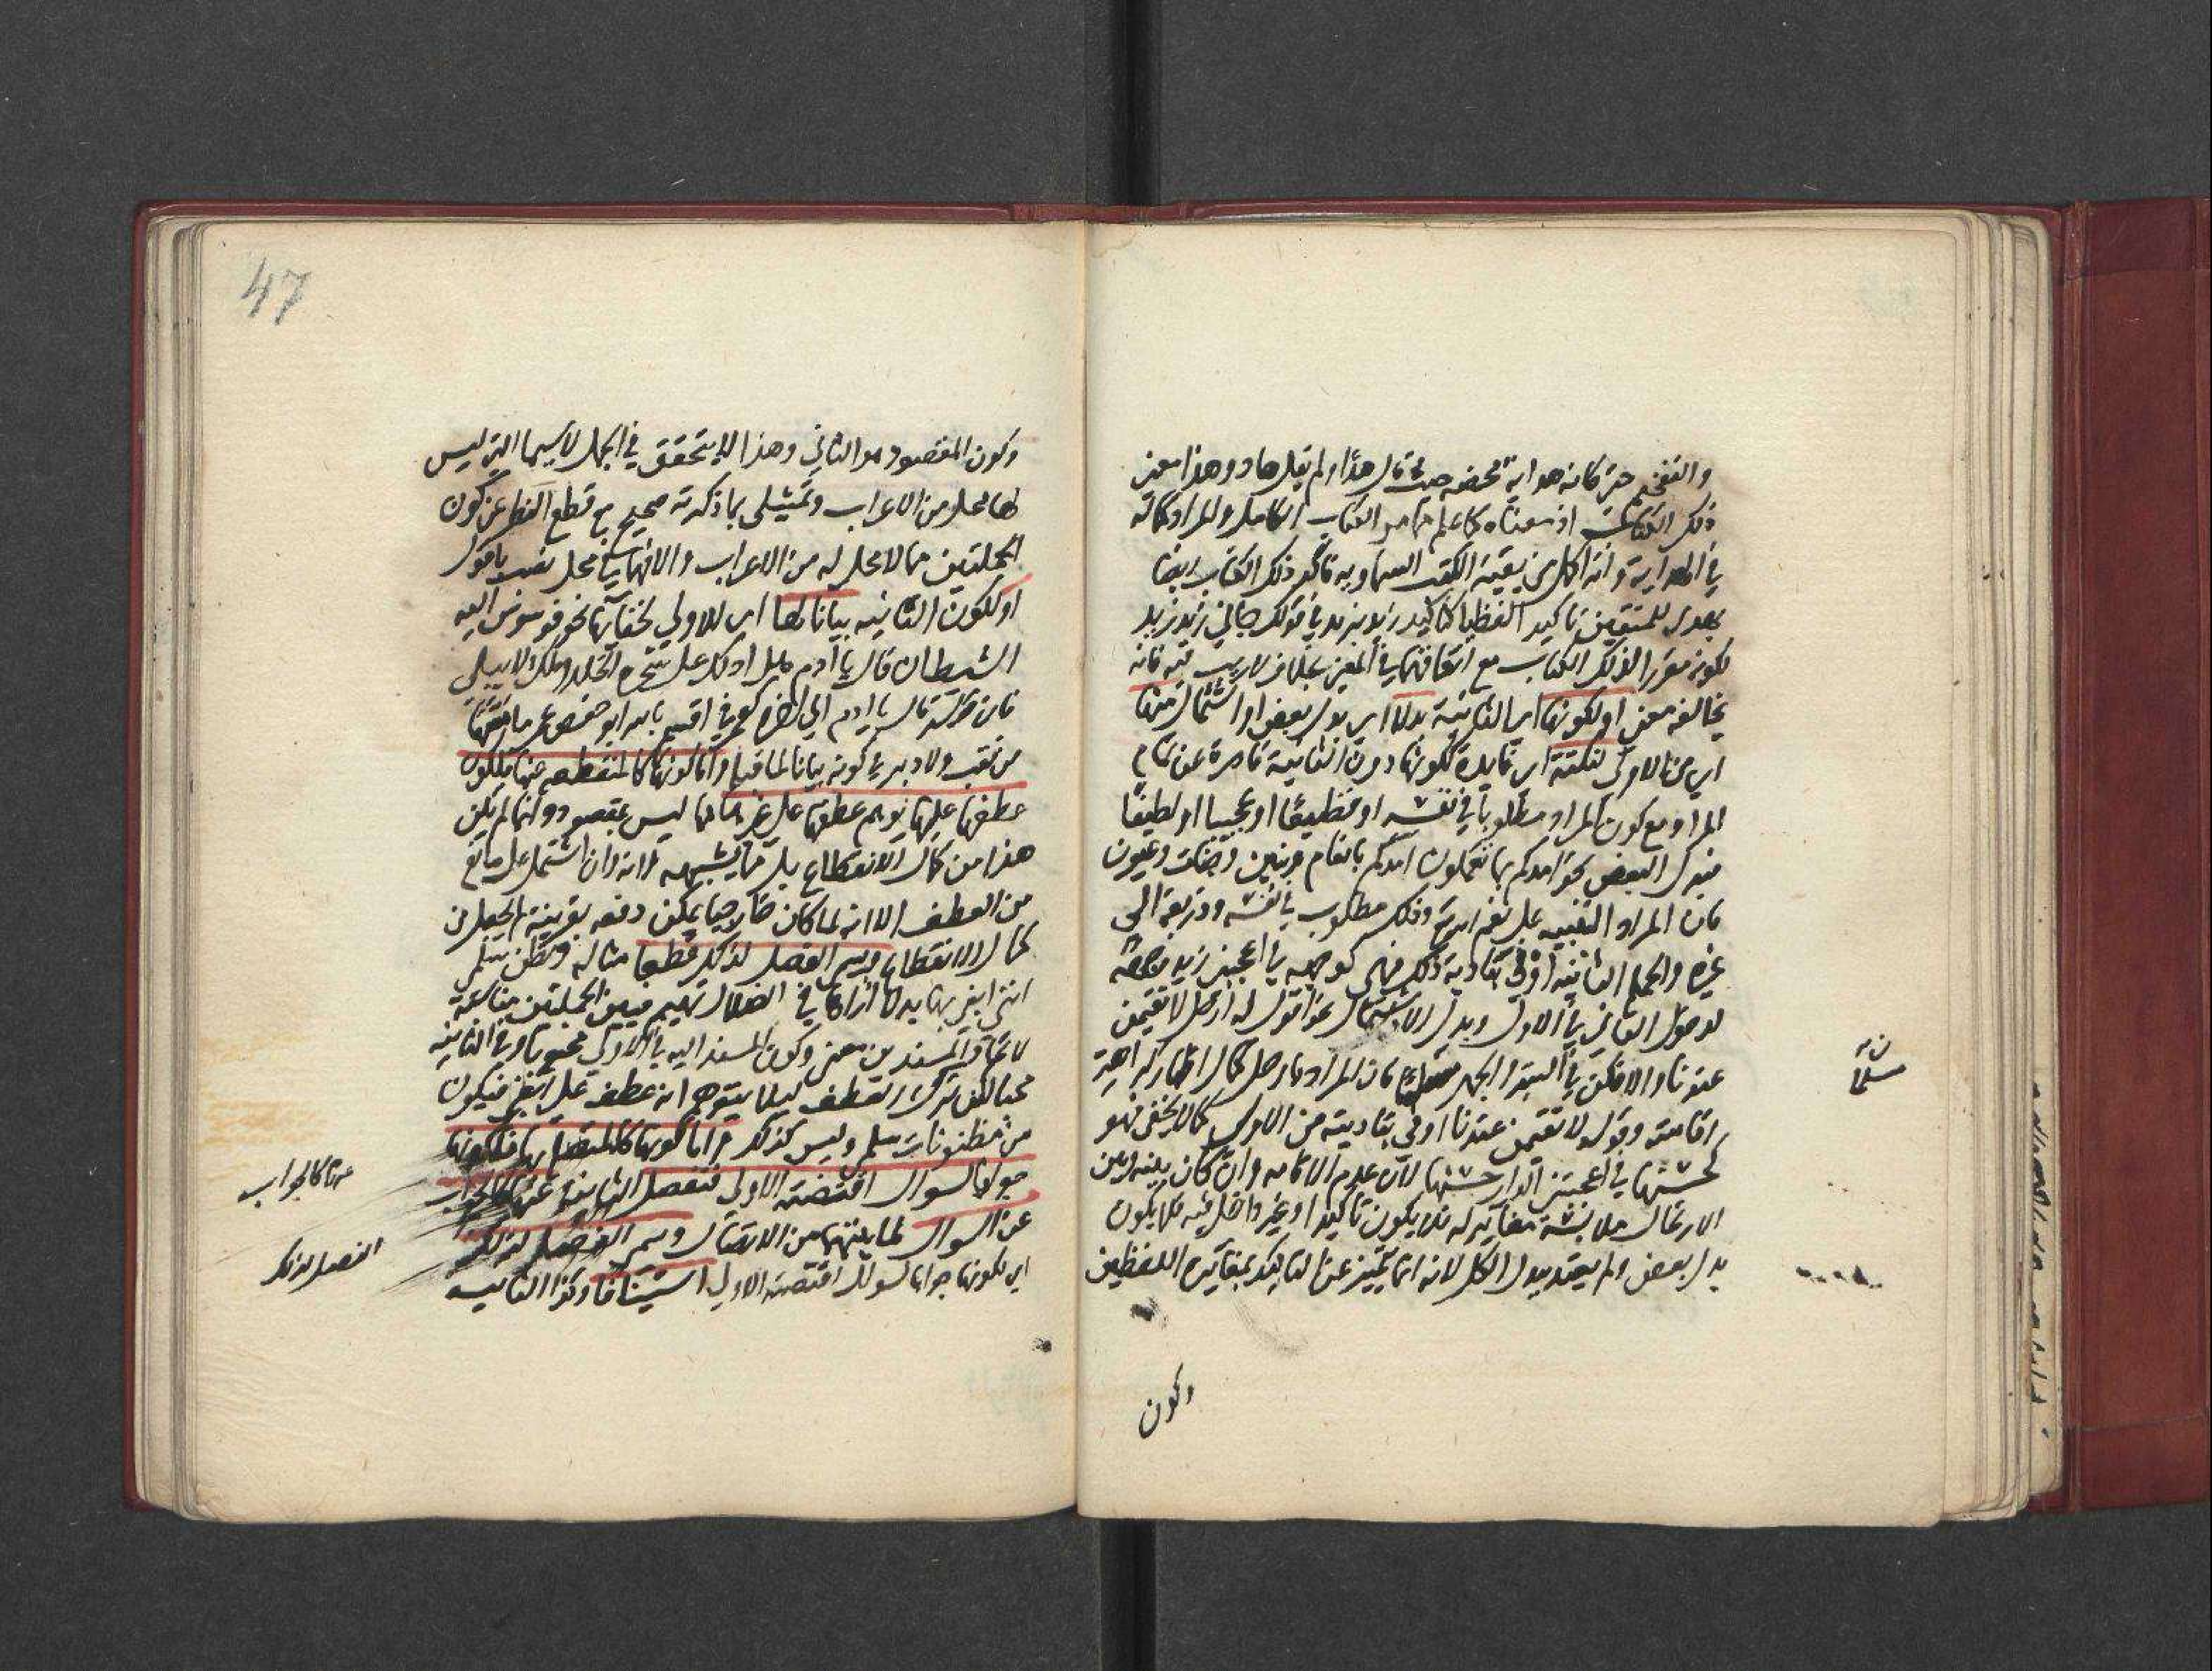 والتفخيم حتى كانه هداية محضه حيث قال هدًا ولم يقل هاد وهذا معنى
ذلك الكتاب اذ معناه كما علم مما مر الكتاب الكامل والمراد كماله
في الهداية وانه اكمل من بقية الكتب السماوية فاكد ذلك الكتاب ايضا
بهدى للمتقين تاكيد الفظيا كتاكيد زيد بزيد في قولك جاني زيد زيد
لكونه مقررا لذلك الكتاب مع اتفاقهما في المعنى بخلاف لا ريب فيه فانه
يخالفه معنى او لكونها اي الثانية بدلا اي بدل بعض او اشتمال منها
اي من الاولى لنكتة اي فايدة لكونها دون الثانية قاصرة عن تمام
المراد مع كون المراد مطلوبا في نفسه او فظيعًا او عجيبا او لطيفًا
فبدل البعض نحو امدكم بما تعملون امدكم بانعام وبنين وجنات وعيون
فان المراد التنبيه على نعم الله وذلك مطلوب في نفسه وذريعة الى
غيره والجملة الثانية اوفى بتادية ذلك فهي كوجهه في اعجبني زيد وجهه
لدخول الثاني في الاول وبدل الاشتمال نحو اقول له ارحل لا تقيمن
عندنا والا فكن في السر والجهر مسلمًا فان المراد بارحل كمال اظهار كراهة
اقامته وقوله لا تقيمن عندنا اوفى بتاديته من الاول كما لا يخفى فهو
كحسنها في اعجبتني الدار حسنها لان عدم الاقامه وان كان بينه وبين
الارتحال ملابسة مغاير له فلا يكون تاكيدا وغير داخل فيه فلا يكون
بدل بعض ولم يعتد ببدل الكل لانه انما يتميز عن التاكيد بمغايرة اللفظين
مسلما
وكون
47
وكون المقصود هو الثاني وهذا لا يتحقق في الجمل لا سيما التي ليس
لها محل من الاعراب وتمثيلي بما ذكرته صحيح مع قطع النظر عن كون
الجملتين مما لا محل له من الاعراب والا فهما في محل نصب باقول
او لكون الثانيه بيانا لها اي للاولى لخفائها نحو فوسوس اليه
الشيطان قال يا ادم هل ادلك على شجرة الخلد وملك لا يبلى
فان قوله قال يا ادم الى اخره كعمر في اقسم بالله ابو حفص عمر ما مسها
من نقب ولا دبر في كونه بيانا لما قبله واما كونها كالمنقطعه عنها فلكون
عطفها عليها يوهم عطفها على غيرها مما ليس بمقصود وانما لم يكن
هذا من كمال الانقطاع بل مما يشبهه لانه وان اشتمل على مانع
من العطف الا انه لما كان خارجيا يمكن دفعه بقرينة لم يجعل من
كمال الانقطاع وسم الفصل لذلك قطعا مثاله وتظن سلمى
انني ابغي بها بدلا اراها في الضلال تهيم فبين الجملتين مناسبة
لاتحاد المسندين معنى وكون المسند اليه في الاولى محبوبا وفي الثانيه
محبا لكن ترك العطف ليلا يتوهم انه عطف على ابغي فيكون
من مظنونات سلمى وليس كذلك واما كونها كالمتصل بها فلكونها
جوابا لسوال اقتضته الاولى فتفصل الثانية عنها كالجواب
عن السوال لما بينهما من الاتصال وسم الفصل لذلك
اي لكونها جوابا لسوال اقتضته الاولى استينافا وكذا الثانيه
عنها كالجواب
الفصل لذلك